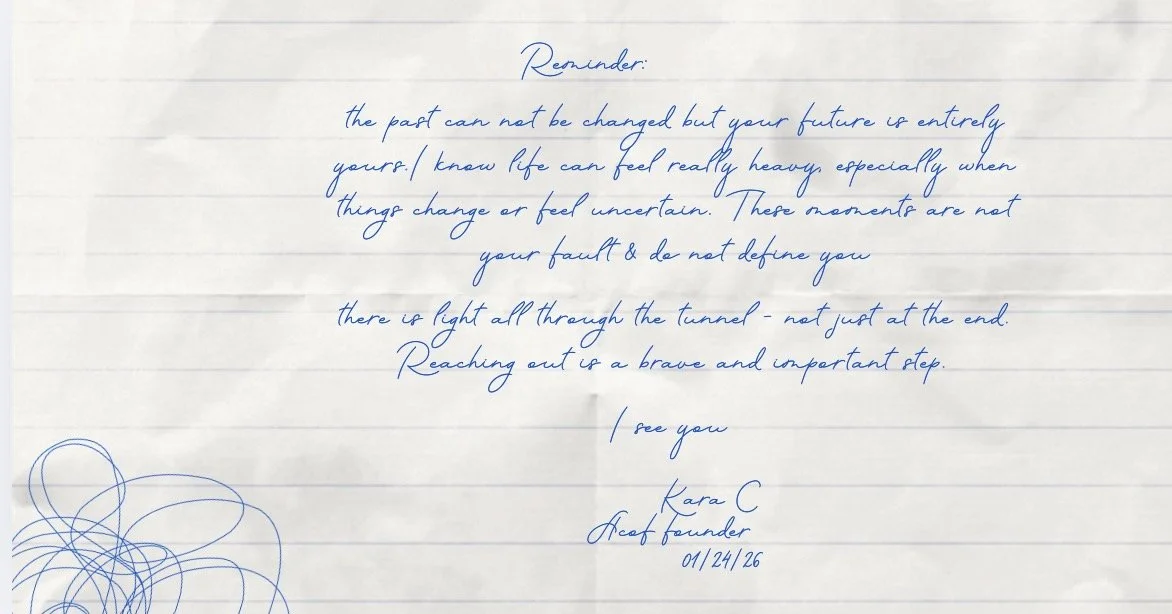 Reminder:
the past can not be changed but your future is entirely
yours.I know life can feel really heavy, especially when
things change or feel uncertain. These moments are not
your fault & do not define you
there is light all through the tunnel - not just at the end.
Reaching out is a brave and important step.
I see you
Kara C
Acof founder
01/24/26